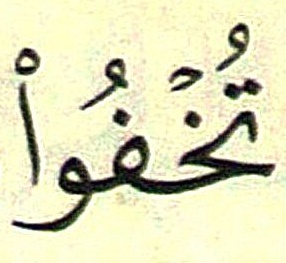 تُخْفُوا۟